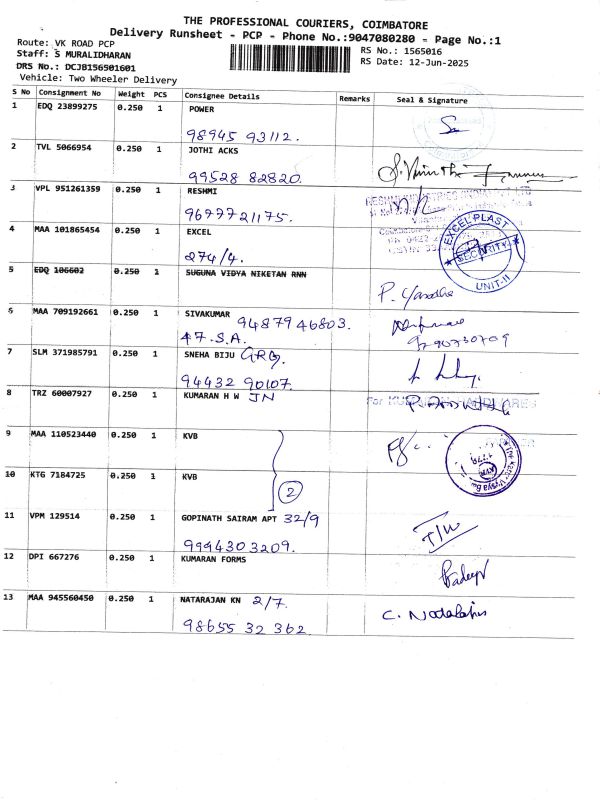 THE PROFESSIONAL COURIERS, COIMBATORE
Delivery Runsheet - PCP - Phone No.:9047080280 - Page No.:1
Route: VK ROAD PCP
Staff: S MURALIDHARAN
DRS No.: DCJB156501601
Vehicle: Two Wheeler Delivery
RS No.: 1565016
RS Date: 12-Jun-2025
S No Consignment No Weight PCS Consignee Details Remarks Seal & Signature
1 EDQ 23899275 0.250 1 POWER
98945 93112.
2 TVL 5066954 0.250 1 JOTHI ACKS
99528 82820.
3 VPL 951261359 0.250 1 RESHMI
9697721175.
4 MAA 101865454 0.250 1 EXCEL
274/4.
EXCEL PLAST
SECURITY
UNIT-II
5 EDQ 106602 0.250 1 SUGUNA VIDYA NIKETAN RNN
6 MAA 709192661 0.250 1 SIVAKUMAR 9487946803.
47.S.A.
7 SLM 371985791 0.250 1 SNEHA BIJU GRG.
94432 90107.
8 TRZ 60007927 0.250 1 KUMARAN H W JN
For
9 MAA 110523440 0.250 1 KVB
10 KTG 7184725 0.250 1 KVB
2
11 VPM 129514 0.250 1 GOPINATH SAIRAM APT 32/9
9994303209.
12 DPI 667276 0.250 1 KUMARAN FORMS
13 MAA 945560450 0.250 1 NATARAJAN KN 2/7.
98655 32 362.